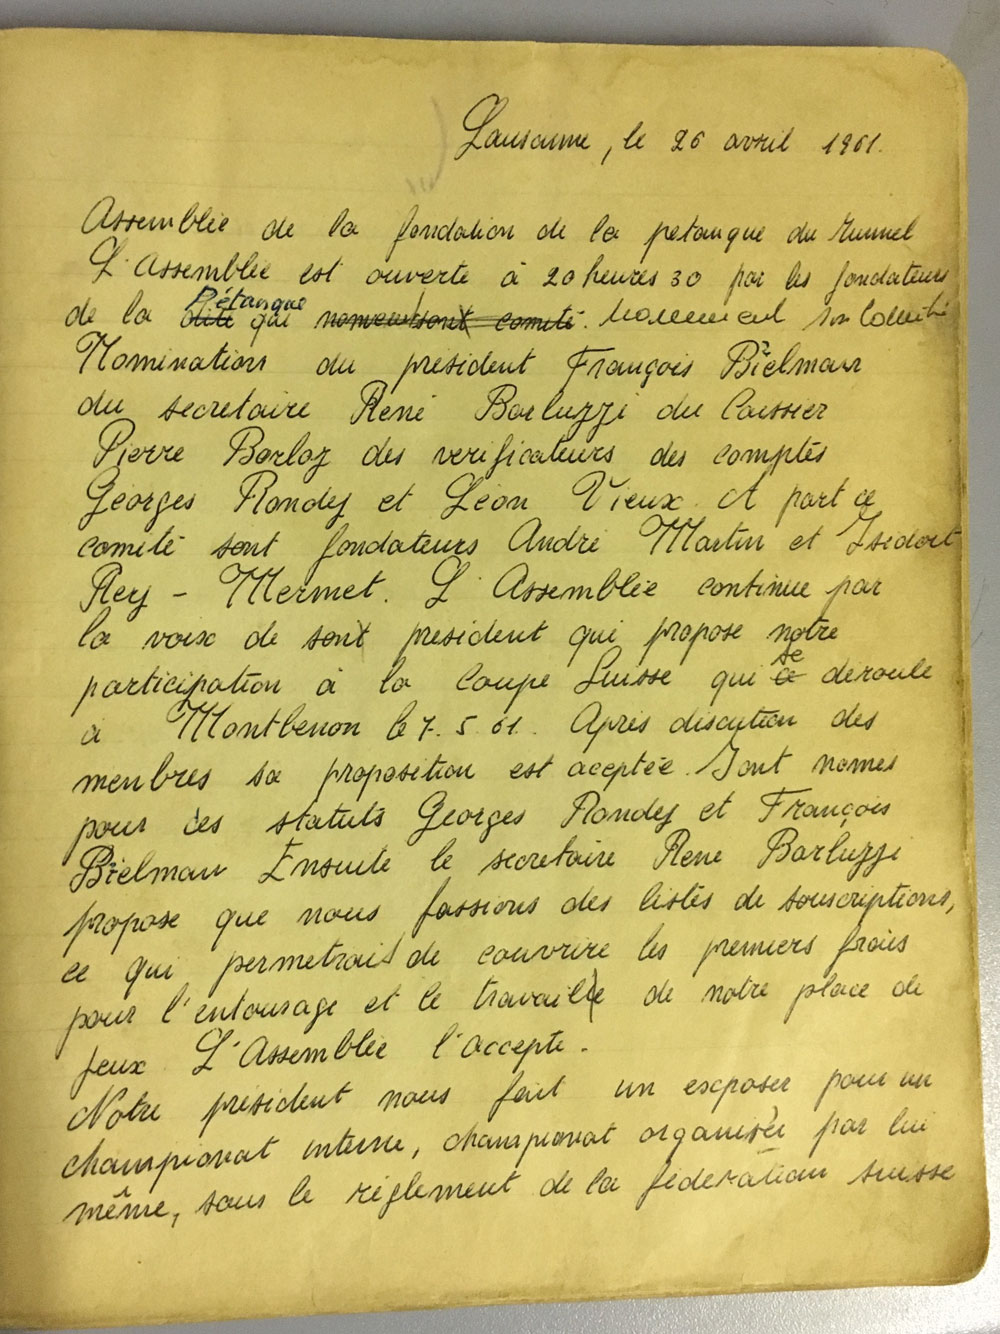 Lausanne, le 26 avril 1961.
Assemblée de la fondation de la petanque du Tunnel
L'Assemblée est ouverte à 20 heures 30 par les fondateurs
de la Pétanque qui nomment son Comité
Nomination du président François Bielman
du secretaire René Barluzzi du Caissier
Pierre Barloz des verificateurs des comptés
Georges Rondez et Léon Vieux. A part ce
comité sont fondateurs André Martin et Isidort
Rey - Mermet. L'Assemblée continue par
la voix de son président qui propose notre
participation à la Coupe Suisse qui se deroule
a Montbenon le 7.5.61. Après discution des
menbres sa proposition est aceptée. Sont només
pour les statuts Georges Rondez et François
Bielman Ensuite le secretaire René Barluzzi
propose que nous fassions des listés de souscriptions,
ce qui permetrait de couvrire les premiers fraies
pour l'entourage et le travail de notre place de
jeux L'Assemblée l'accepte.
Notre président nous fait un exposer pour un
championat interne, championat organisée par lui
même, sous le réglement de la féderation suisse